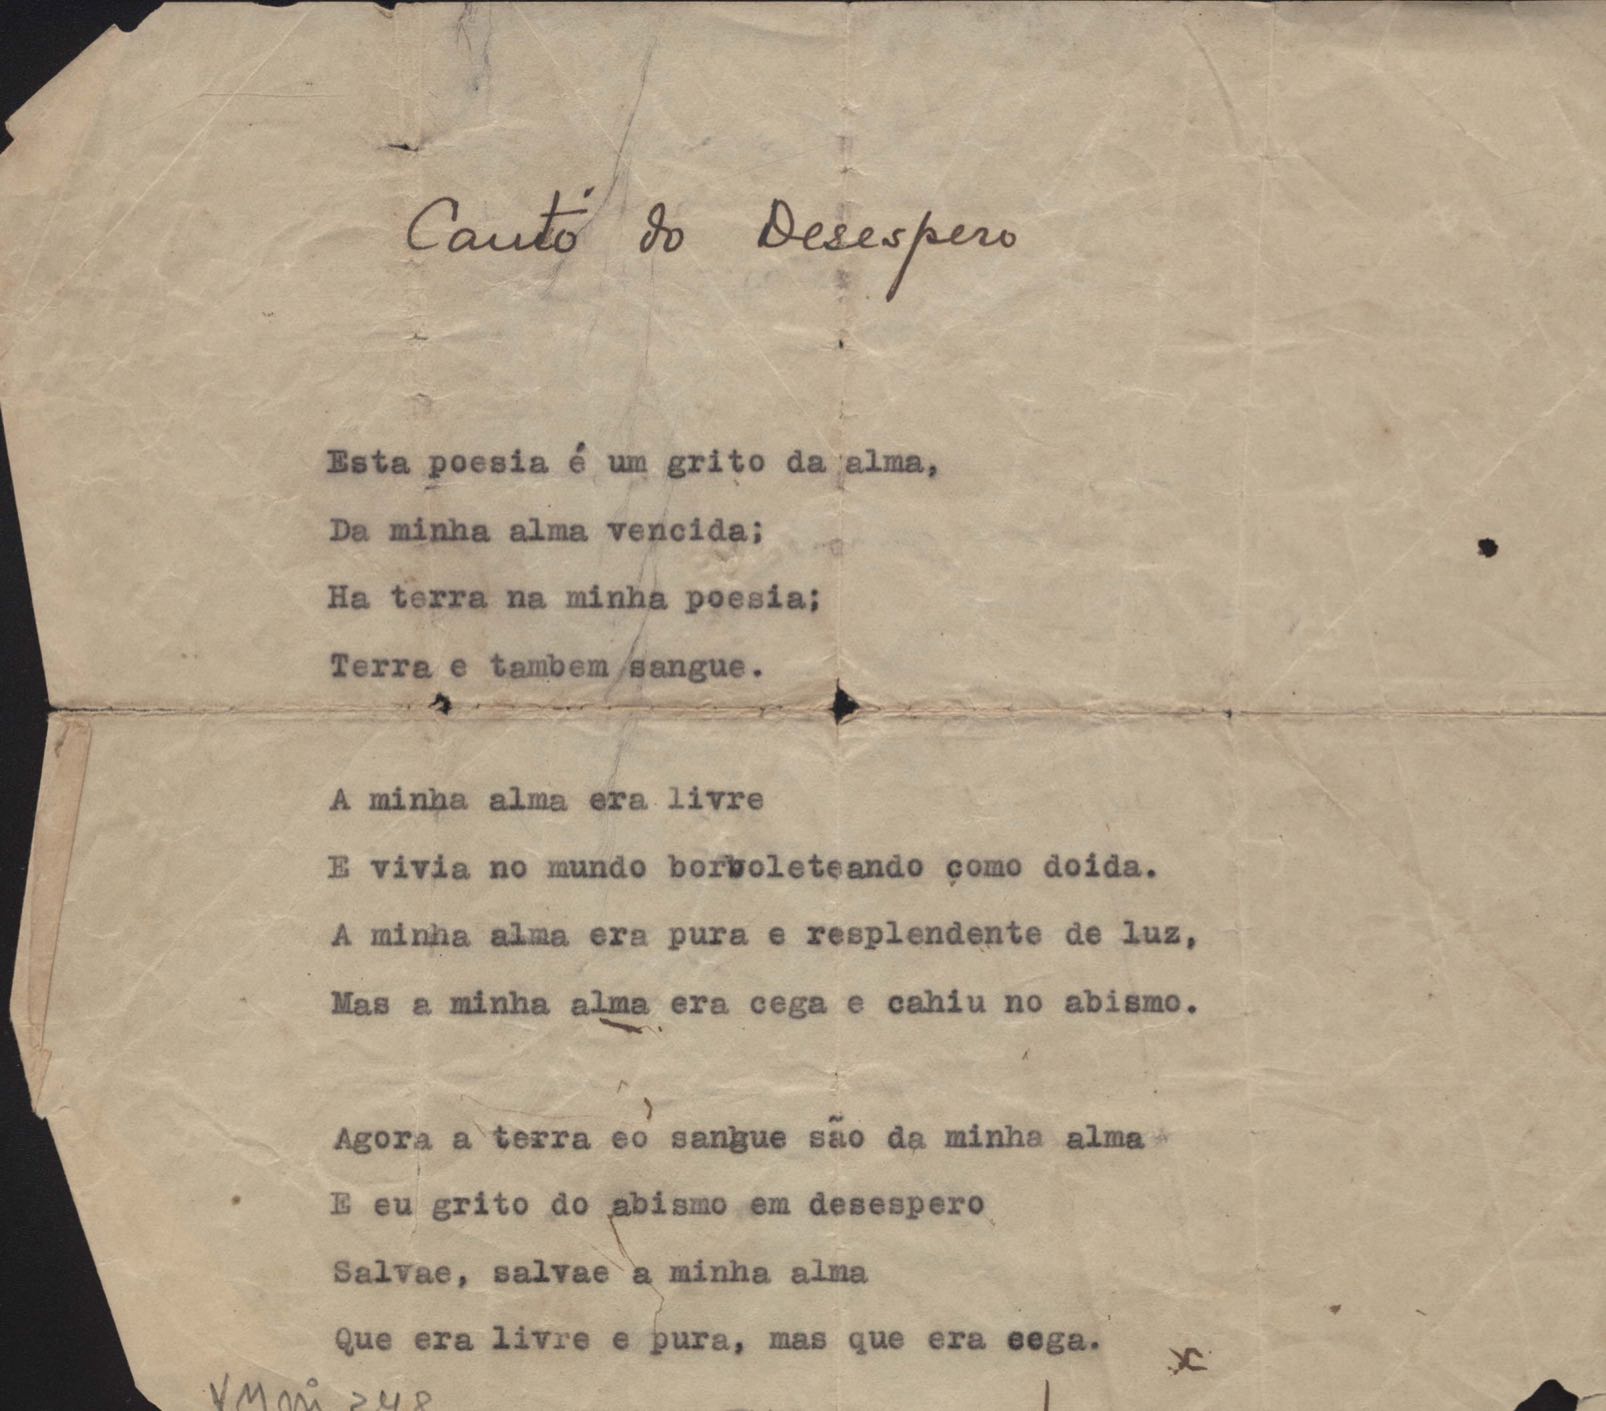 Canto do Desespero
Esta poesia é um grito da alma,
Da minha alma vencida;
Ha terra na minha poesia;
Terra e tambem sangue.
A minha alma era livre
E vivia no mundo borboleteando como doida.
A minha alma era pura e resplendente de luz,
Mas a minha alma era cega e cahiu no abismo.
Agora a terra eo sangue são da minha alma
E eu grito do abismo em desespero
Salvae, salvae a minha alma
Que era livre e pura, mas que era cega.
x
248